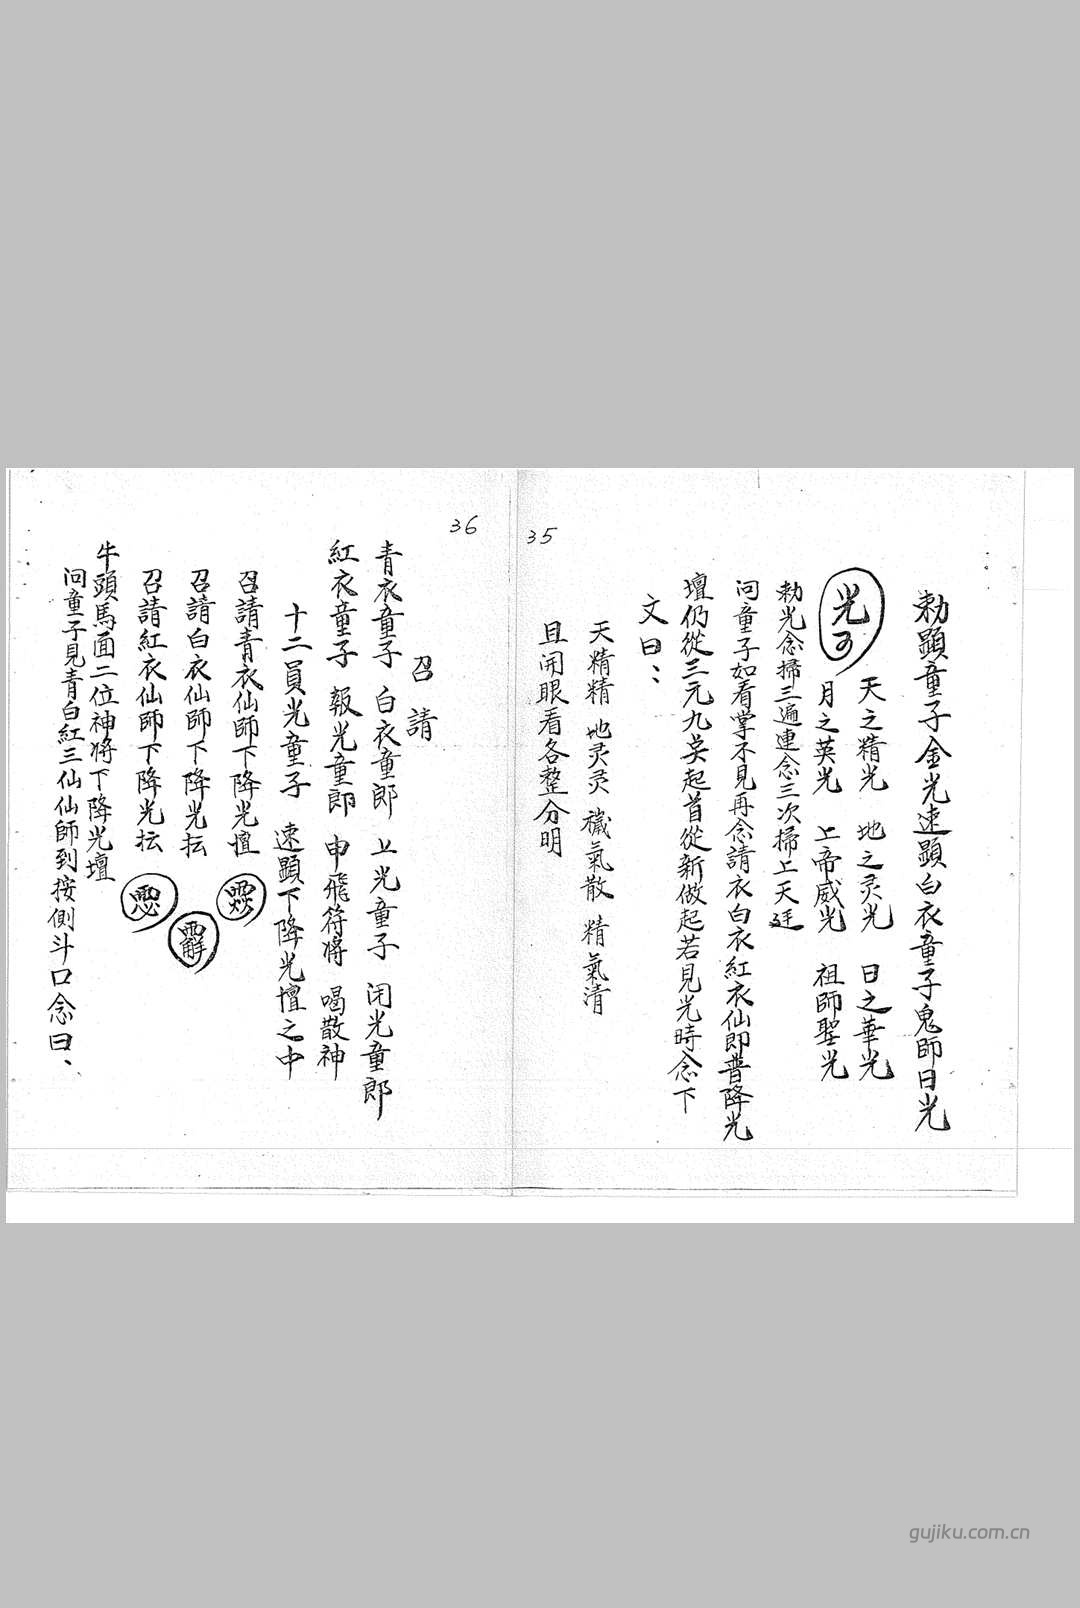 35
勅顕童子金光速顕白衣童子鬼師日光
光
天之精光 地之灵光 日之華光
月之英光 上帝威光 祖師聖光
勅光念掃三遍連念三次掃上天廷
问童子如看掌不見再念請衣白衣紅衣仙即普降光
壇仍從三元九炁起首從新做起若見光時念下
文曰、、
天精精 地灵灵 穢氣散 精氣清
且開眼看各整分明
36
召請
青衣童子 白衣童郎 上光童子 闭光童郎
紅衣童子 報光童郎 申飛符將 喝散神
十二員光童子 速顕下降光壇之中
召請青衣仙師下降光壇
召請白衣仙師下降光坛
召請紅衣仙師下降光坛
牛頭馬面二位神将下降光壇
问童子見青白紅三仙仙師到按側斗口念曰、
gujiku.com.cn